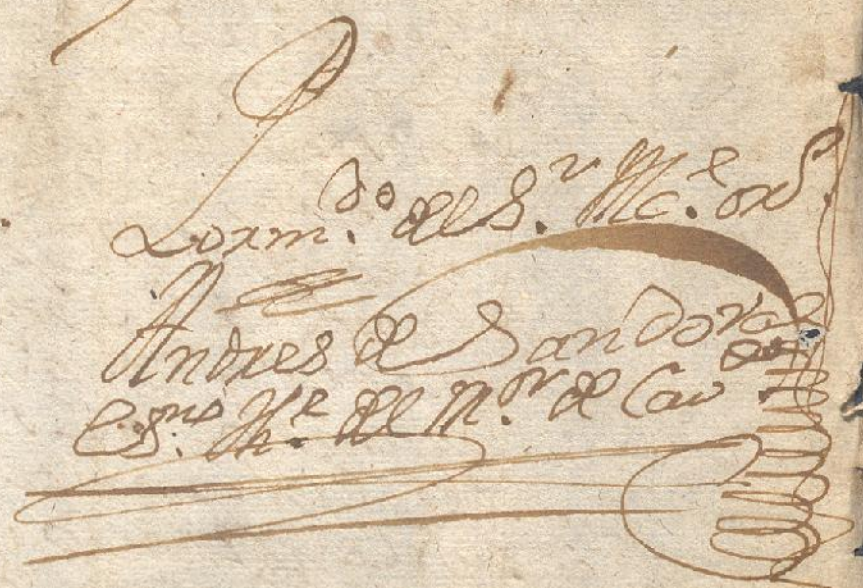 Por m.do del S.r Thc.e ord.
Andres de Sandoval
Es.no Th.e del M.or de Cav.do